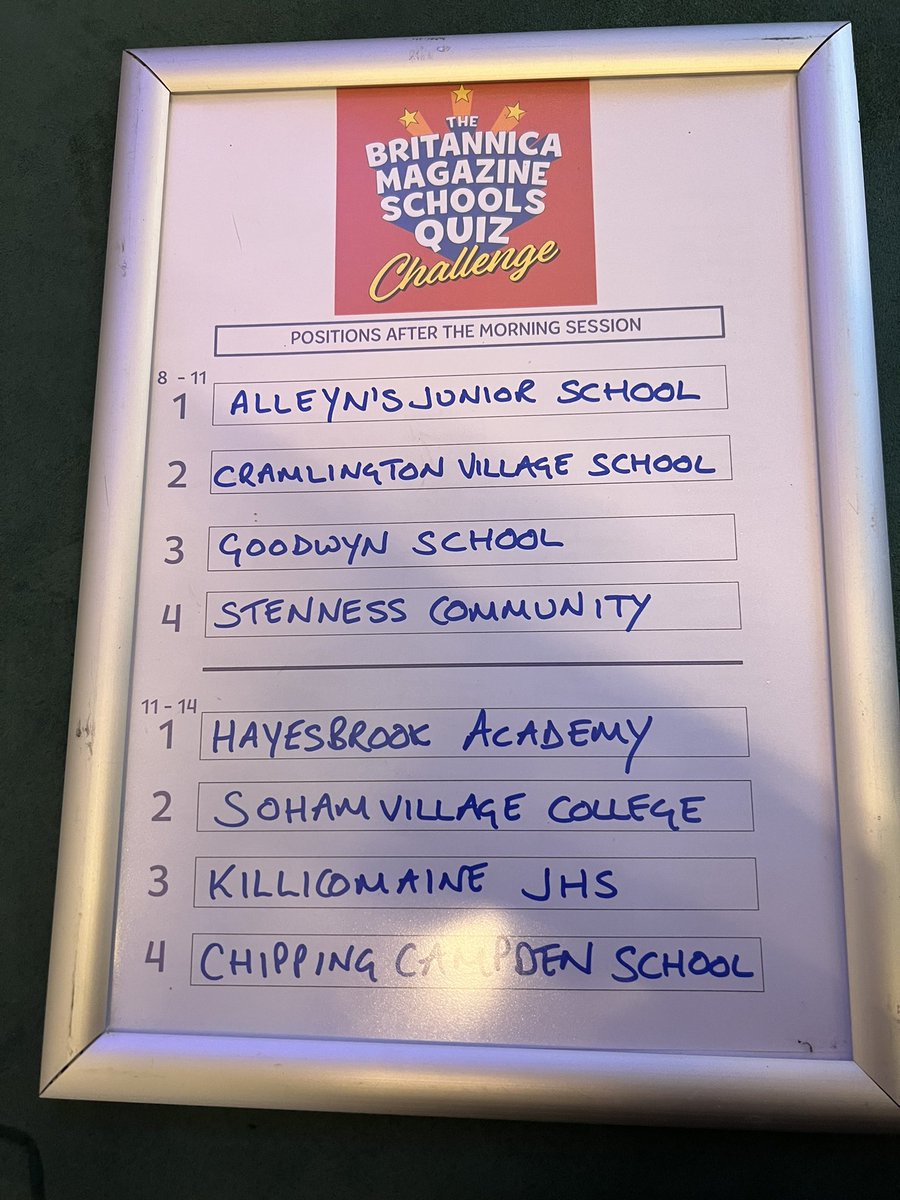 THE
BRITANNICA
MAGAZINE
SCHOOLS
QUIZ
Challenge
POSITIONS AFTER THE MORNING SESSION
8 - 11
1 ALLEYN'S JUNIOR SCHOOL
2 CRAMLINGTON VILLAGE SCHOOL
3 GOODWYN SCHOOL
4 STENNESS COMMUNITY
11 - 14
1 HAYESBROOK ACADEMY
2 SOHAM VILLAGE COLLEGE
3 KILLICOMAINE JHS
4 CHIPPING CAMPDEN SCHOOL